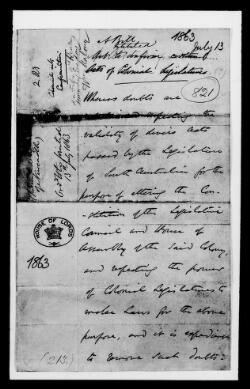 A Bill
intituled
Act to confirm certain
Acts of Colonial Legislatures
1863
July 13
821
Whereas doubts are
entertained respecting the
validity of divers Acts
passed by the Legislature
of South Australia for the
purpose of altering the Con-
stitution of the Legislative
Council and House of
Assembly of the said Colony,
and respecting the powers
of Colonial Legislatures to
make Laws for the above
purpose, and it is expedient
to remove such doubts:
HOUSE OF LORDS
1863
(213.)